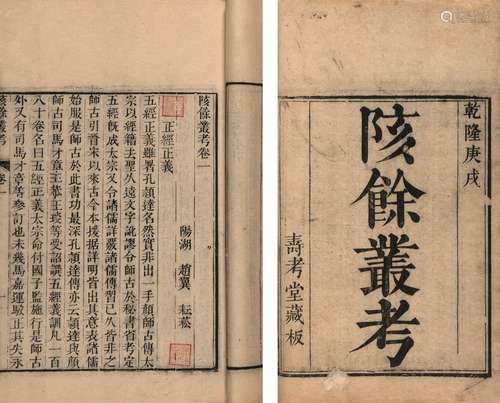 乾隆庚戌
陔餘叢考
壽考堂藏板
陔餘叢考卷一
陽湖 趙翼 耘松
正經正義
五經正義雖署孔穎達名然實非出一手顏師古傳太
宗以經籍去聖久遠文字訛謬令師古於秘書省考定
五經既成太宗又令諸儒詳議諸儒傳習已久皆非之
師古引晉宋以來古今本援據詳明皆出其意表諸儒
始服是師古於此書功最深孔穎達傳亦云穎達與顏
師古司馬才章王恭王琰等受詔譔五經義訓凡一百
八十卷名曰五經正義太宗命付國子監施行是師古
外又有司馬才章等參訂也未幾馬嘉運駁正其失永
陔餘叢考 卷一